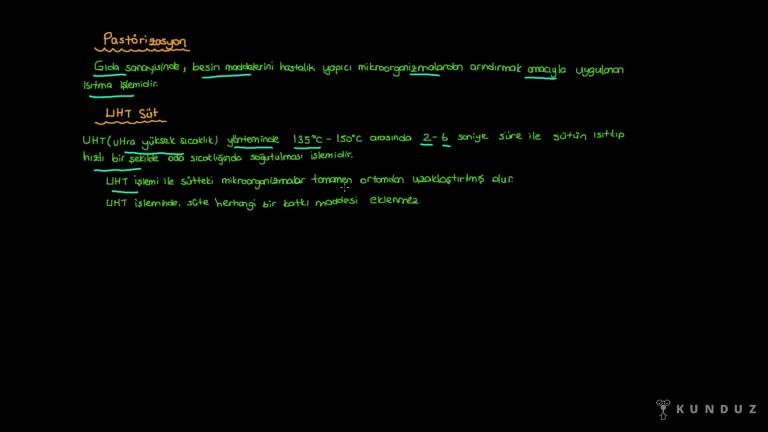 Pastörizasyon
Gıda sanayisinde, besin maddelerini hastalık yapıcı mikroorganizmalardan arındırmak amacıyla uygulanan
ısıtma işlemidir.
UHT Süt
UHT (Ultra yüksek sıcaklık) yönteminde 135°C - 150°C arasında 2-6 saniye süre ile sütün ısıtılıp
hızlı bir şekilde oda sıcaklığında soğutulması işlemidir.
UHT işlemi ile sütteki mikroorganizmalar tamamen ortamdan uzaklaştırılmış olur.
UHT işleminde, süte herhangi bir katkı maddesi eklenmez
KUNDUZ